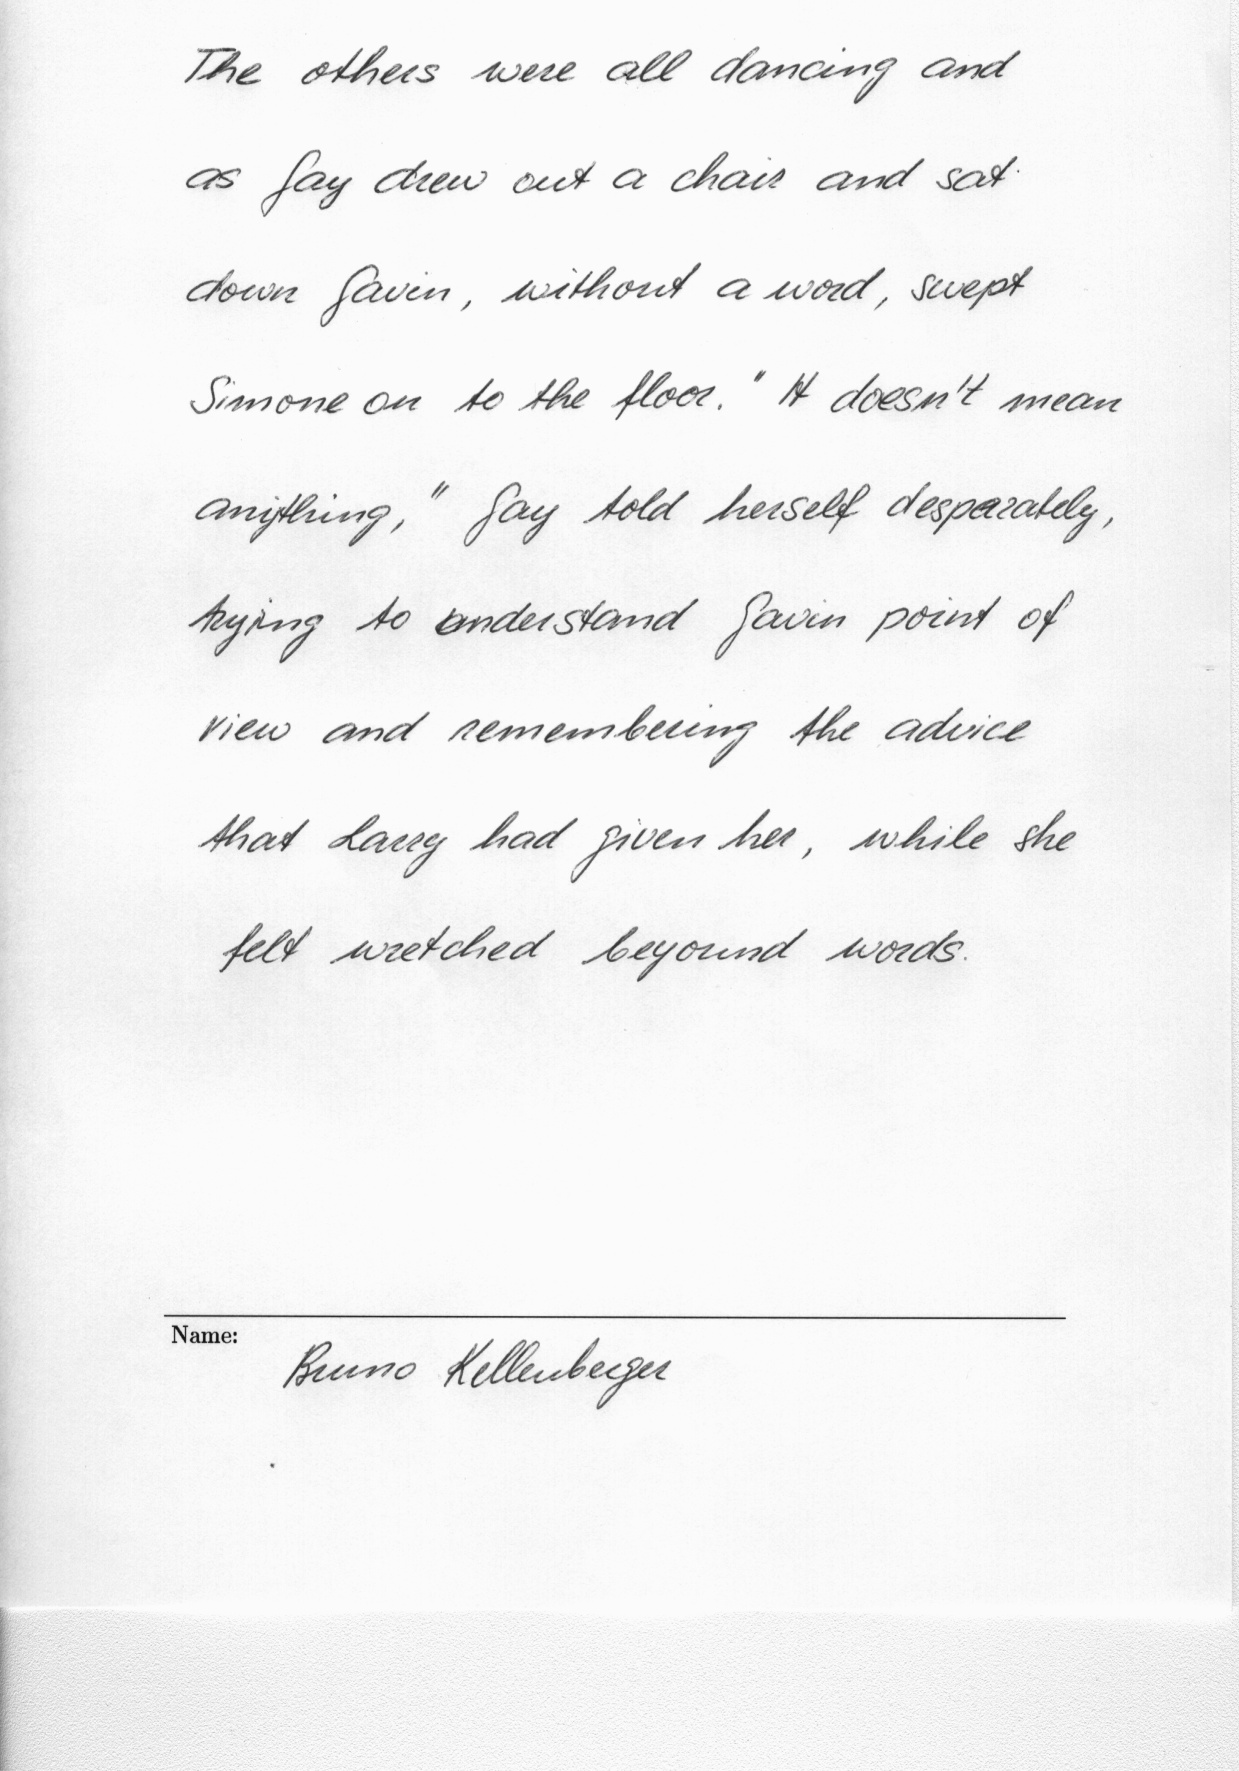 The others were all dancing and
as Gay drew out a chair and sat
down Gavin, without a word, swept
Simone on to the floor. "It doesn't mean
anything," Gay told herself desparately,
trying to understand Gavin point of
view and remembering the advice
that Larry had given her, while she
felt wretched beyound words.
Name:
Bruno Kellenberger